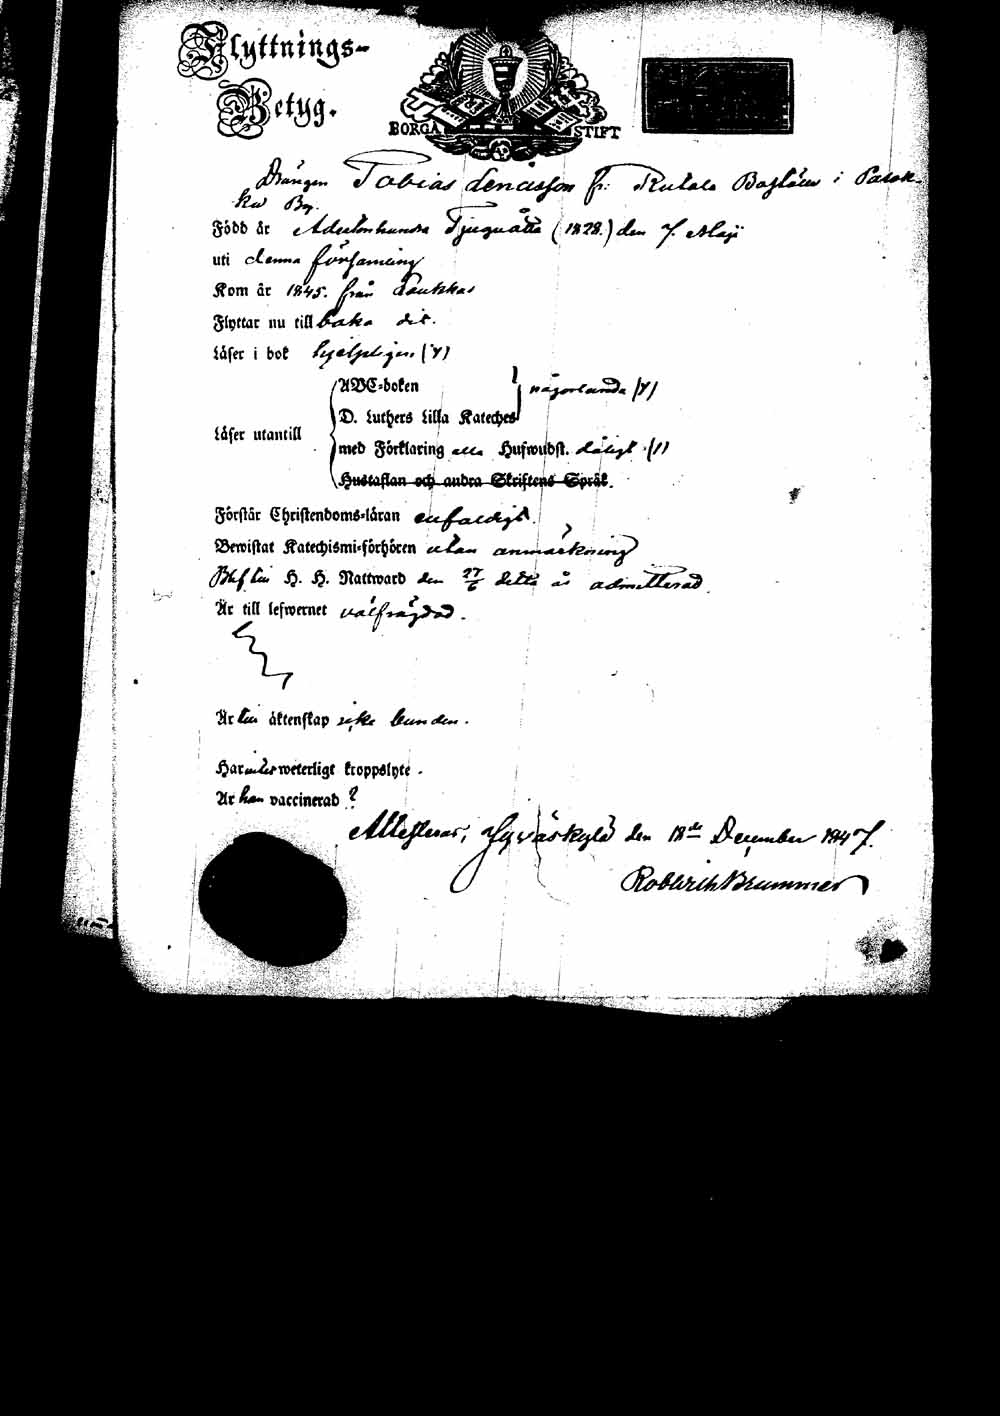 Flyttnings-
Betyg.
BORGÅ STIFT
Drängen Tobias Enasson fr: Rutala Boställe i
by.
Född år Adertonhundra Tjuguåtta (1828.) den 7. Maji
uti denna församling
Kom år 1845. från Laukkas
Flyttar nu till baka dit.
Läser i bok hjelpligen (y)
ABC-boken
någorlunda (y)
D. Luthers Lilla Kateches
Läser utantill
med Förklaring alla Hufwudst. dåligt (/)
Hustaflan och andra Skriftens Språk.
Förstår Christendoms-läran enfaldigt.
Bewistat Katechismi-förhören utan anmärkning
Blef till H. H. Nattward den 27/6 detta år admitterad.
Är till lefwernet välfrägdad.
Är till äktenskap icke bunden.
Har intet weterligt kroppslyte.
Är han vaccinerad ?
Attesterar, Jyväskylä den 18de December 1847.
Brummer